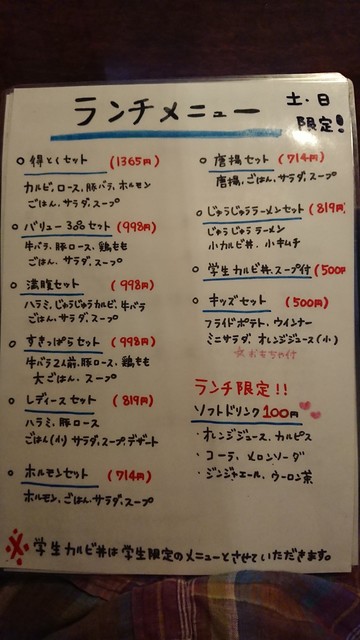 ランチメニュー
土・日
限定!
○ 得とくセット (1365円)
カルビ、ロース、豚バラ、ホルモン
ごはん、サラダ、スープ
○ バリュー300セット (998円)
牛バラ、豚ロース、鶏もも
ごはん、サラダ、スープ
○ 満腹セット (998円)
ハラミ、じゅうじゅうカルビ、牛バラ
ごはん、サラダ、スープ
○ すきっぱらセット (998円)
牛バラ2人前、豚ロース、鶏もも
大ごはん、スープ
○ レディースセット (819円)
ハラミ、豚ロース
ごはん(小) サラダ、スープ、デザート
○ ホルモンセット (714円)
ホルモン、ごはん、サラダ、スープ
○ 唐揚セット (714円)
唐揚、ごはん、サラダ、スープ
○ じゅうじゅうラーメンセット (819円)
じゅうじゅうラーメン
小カルビ丼、小キムチ
○ 学生カルビ丼、スープ付 (500円
○ キッズセット (500円)
フライドポテト、ウインナー
ミニサラダ、オレンジジュース(小)
☆おもちゃ付
ランチ限定!!
ソフトドリンク100円
・オレンジジュース、カルピス
・コーラ、メロンソーダ
・ジンジャエール、ウーロン茶
※学生カルビ丼は学生限定のメニューとさせていただきます。